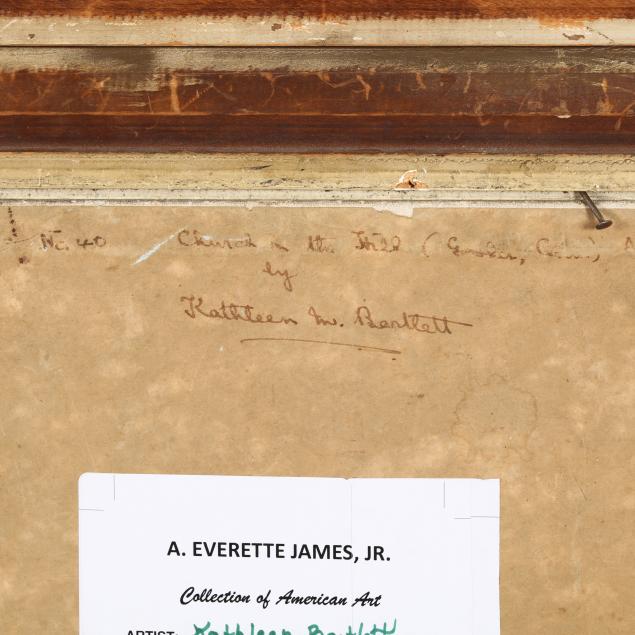 No. 40 Church on the Hill (
by
Kathleen M. Bartlett
A. EVERETTE JAMES, JR.
Collection of American Art
ARTIST: Kathleen Bartlett